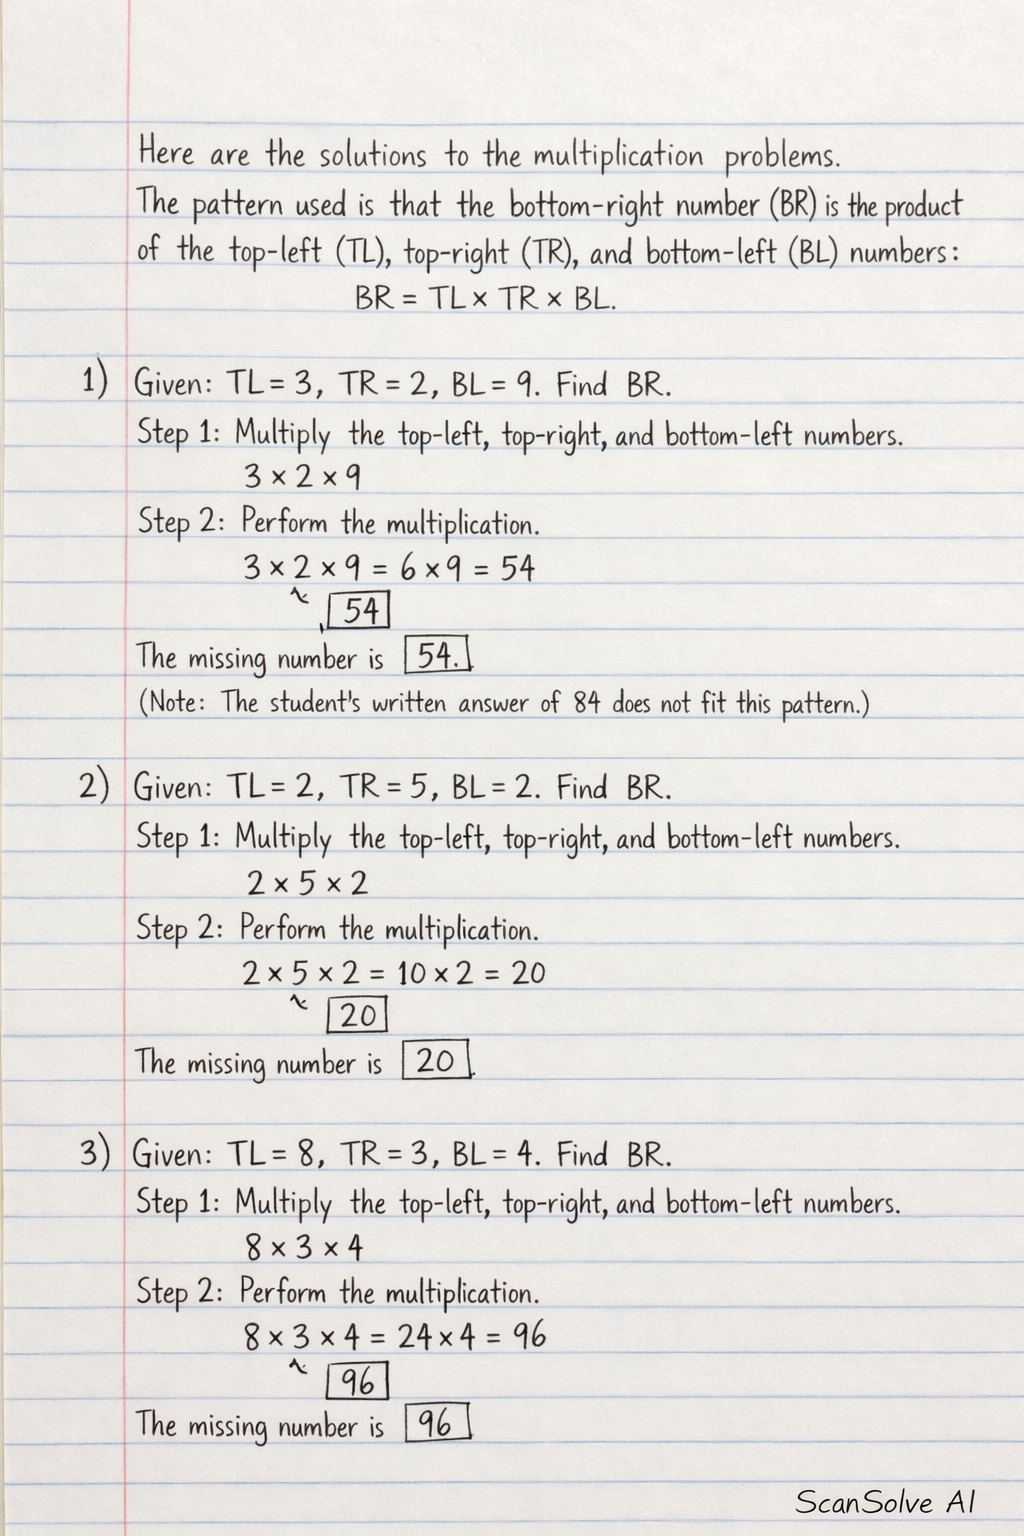 Here are the solutions to the multiplication problems.
The pattern used is that the bottom-right number (BR) is the product
of the top-left (TL), top-right (TR), and bottom-left (BL) numbers:
BR = TL × TR × BL.
1) Given: TL = 3, TR = 2, BL = 9. Find BR.
Step 1: Multiply the top-left, top-right, and bottom-left numbers.
3 × 2 × 9
Step 2: Perform the multiplication.
3 × 2 × 9 = 6 × 9 = 54
54
The missing number is 54.
(Note: The student's written answer of 84 does not fit this pattern.)
2) Given: TL = 2, TR = 5, BL = 2. Find BR.
Step 1: Multiply the top-left, top-right, and bottom-left numbers.
2 × 5 × 2
Step 2: Perform the multiplication.
2 × 5 × 2 = 10 × 2 = 20
20
The missing number is 20.
3) Given: TL = 8, TR = 3, BL = 4. Find BR.
Step 1: Multiply the top-left, top-right, and bottom-left numbers.
8 × 3 × 4
Step 2: Perform the multiplication.
8 × 3 × 4 = 24 × 4 = 96
96
The missing number is 96
ScanSolve AI